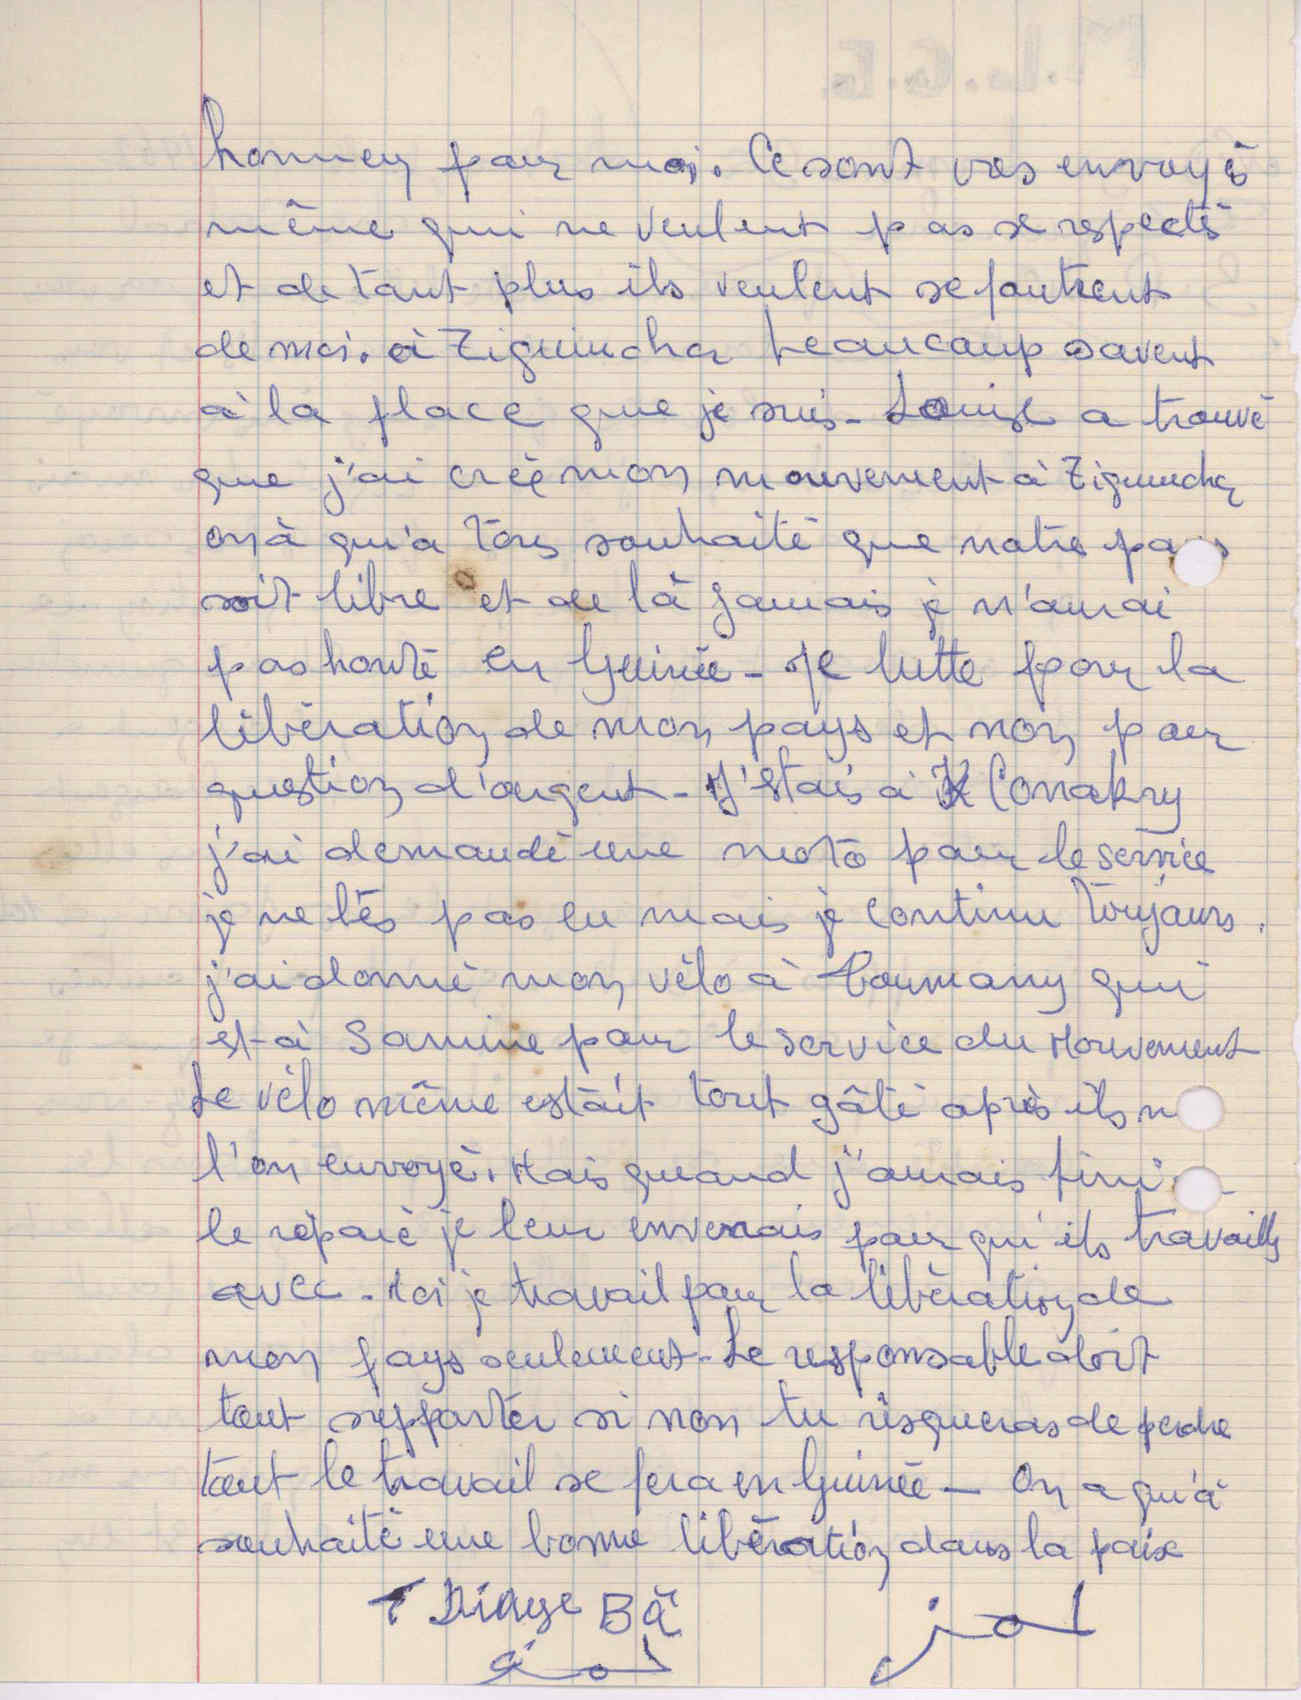 pour moi. Ce sont vos envoyés
même qui ne veulent pas se respecté
et de tant plus ils veulent se foutrent
de moi. à Ziguinchor beaucoup savent
à la place que je suis - Louise a trouvé
que j'ai créé mon mouvement à Ziguinchor
on à qu'a tous souhaité que notre pays
soit libre et de là jamais je n'aurai
pas honté en Guinée - Je lutte pour la
libération de mon pays et non pour
question d'argent - J'étais à Conakry
j'ai demandé une moto pour le service
je ne l'és pas eu mais je continu toujours.
j'ai donné mon vélo à Toumany qui
est à Samine pour le service du Mouvement
Le vélo même était tout gâté après ils
l'on envoyé. Mais quand j'aurais fini
le réparé je leur enverrais pour qu'ils travaills
avec - Moi je travail pour la libération de
mon pays seulement - Le responsable doit
tout supporter si non tu risqueras de perdre
tout le travail se fera en Guinée - On a qu'à
souhaité une bonne libération dans la paix
Diaye Bâ